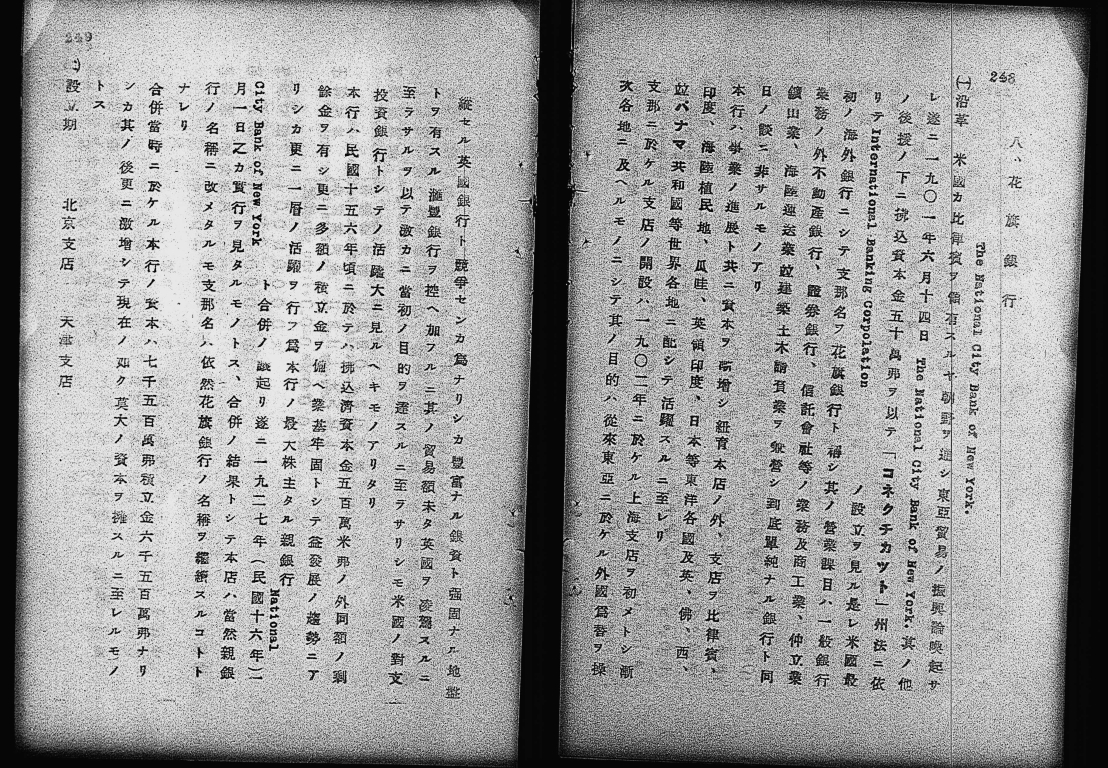 248
八、花旗銀行
The National City Bank of New York.
(一)沿革 米國カ比律賓ヲ領有スルヤ朝野ヲ通シ東亞貿易ノ振興論喚起サ
レ遂ニ一九〇一年六月十四日 The National City Bank of New York. 其ノ他
ノ後援ノ下ニ拂込資本金五十萬弗ヲ以テ「コネクチカツト」州法ニ依
リテ International Banking Corpolation ノ設立ヲ見ル是レ米國最
初ノ海外銀行ニシテ支那名ヲ花旗銀行ト稱シ其ノ營業課目ハ一般銀行
業務ノ外不動產銀行、證券銀行、信託會社等ノ業務及商工業、仲立業
鑛山業、海陸運送業竝建築土木請負業ヲ兼營シ到底單純ナル銀行ト同
日ノ談ニ非サルモノアリ
本行ハ業ノ進展ト共ニ資本ヲ增シ紐育本店ノ外、支店ヲ比律賓、
印度、海陸植民地、瓜哇、英領印度、日本等東洋各國及英、佛、西、
竝パナマ共和國等世界各地ニ配シテ活躍スルニ至レリ
支那ニ於ケル支店ノ開設ハ一九〇二年ニ於ケル上海支店ヲ初メトシ漸
次各地ニ及ヘルモノニシテ其ノ目的ハ從來東亞ニ於ケル外國爲替ヲ操
249
縱セル英國銀行ト競爭センカ爲ナリシカ豐富ナル銀資ト强固ナル地盤
トヲ有スル滙豐銀行ヲ控ヘ加フルニ其ノ貿易額未タ英國ヲ凌駕スルニ
至ラサルヲ以テ敢カニ當初ノ目的ヲ達スルニ至ラサリシモ米國ノ對支
投資銀行トシテノ活躍大ニ見ルヘキモノアリタリ
本行ハ民國十五六年頃ニ於テハ拂込濟資本金五百萬米弗ノ外同額ノ剩
餘金ヲ有シ更ニ多額ノ積立金ヲ備ヘ業基牢固トシテ益發展ノ趨勢ニア
リシカ更ニ一層ノ活躍ヲ行フ爲本行ノ最大株主タル親銀行 National
City Bank of New York ト合併ノ議起リ遂ニ一九二七年(民國十六年)一
月一日之カ實行ヲ見タルモノトス、合併ノ結果トシテ本店ハ當然親銀
行ノ名稱ニ改メタルモ支那名ハ依然花旗銀行ノ名稱ヲ繼續スルコトト
ナレリ
合併當時ニ於ケル本行ノ資本ハ七千五百萬弗積立金六千五百萬弗ナリ
シカ其ノ後更ニ激增シテ現在ノ如ク莫大ノ資本ヲ擁スルニ至レルモノ
トス
設立期 北京支店 天津支店